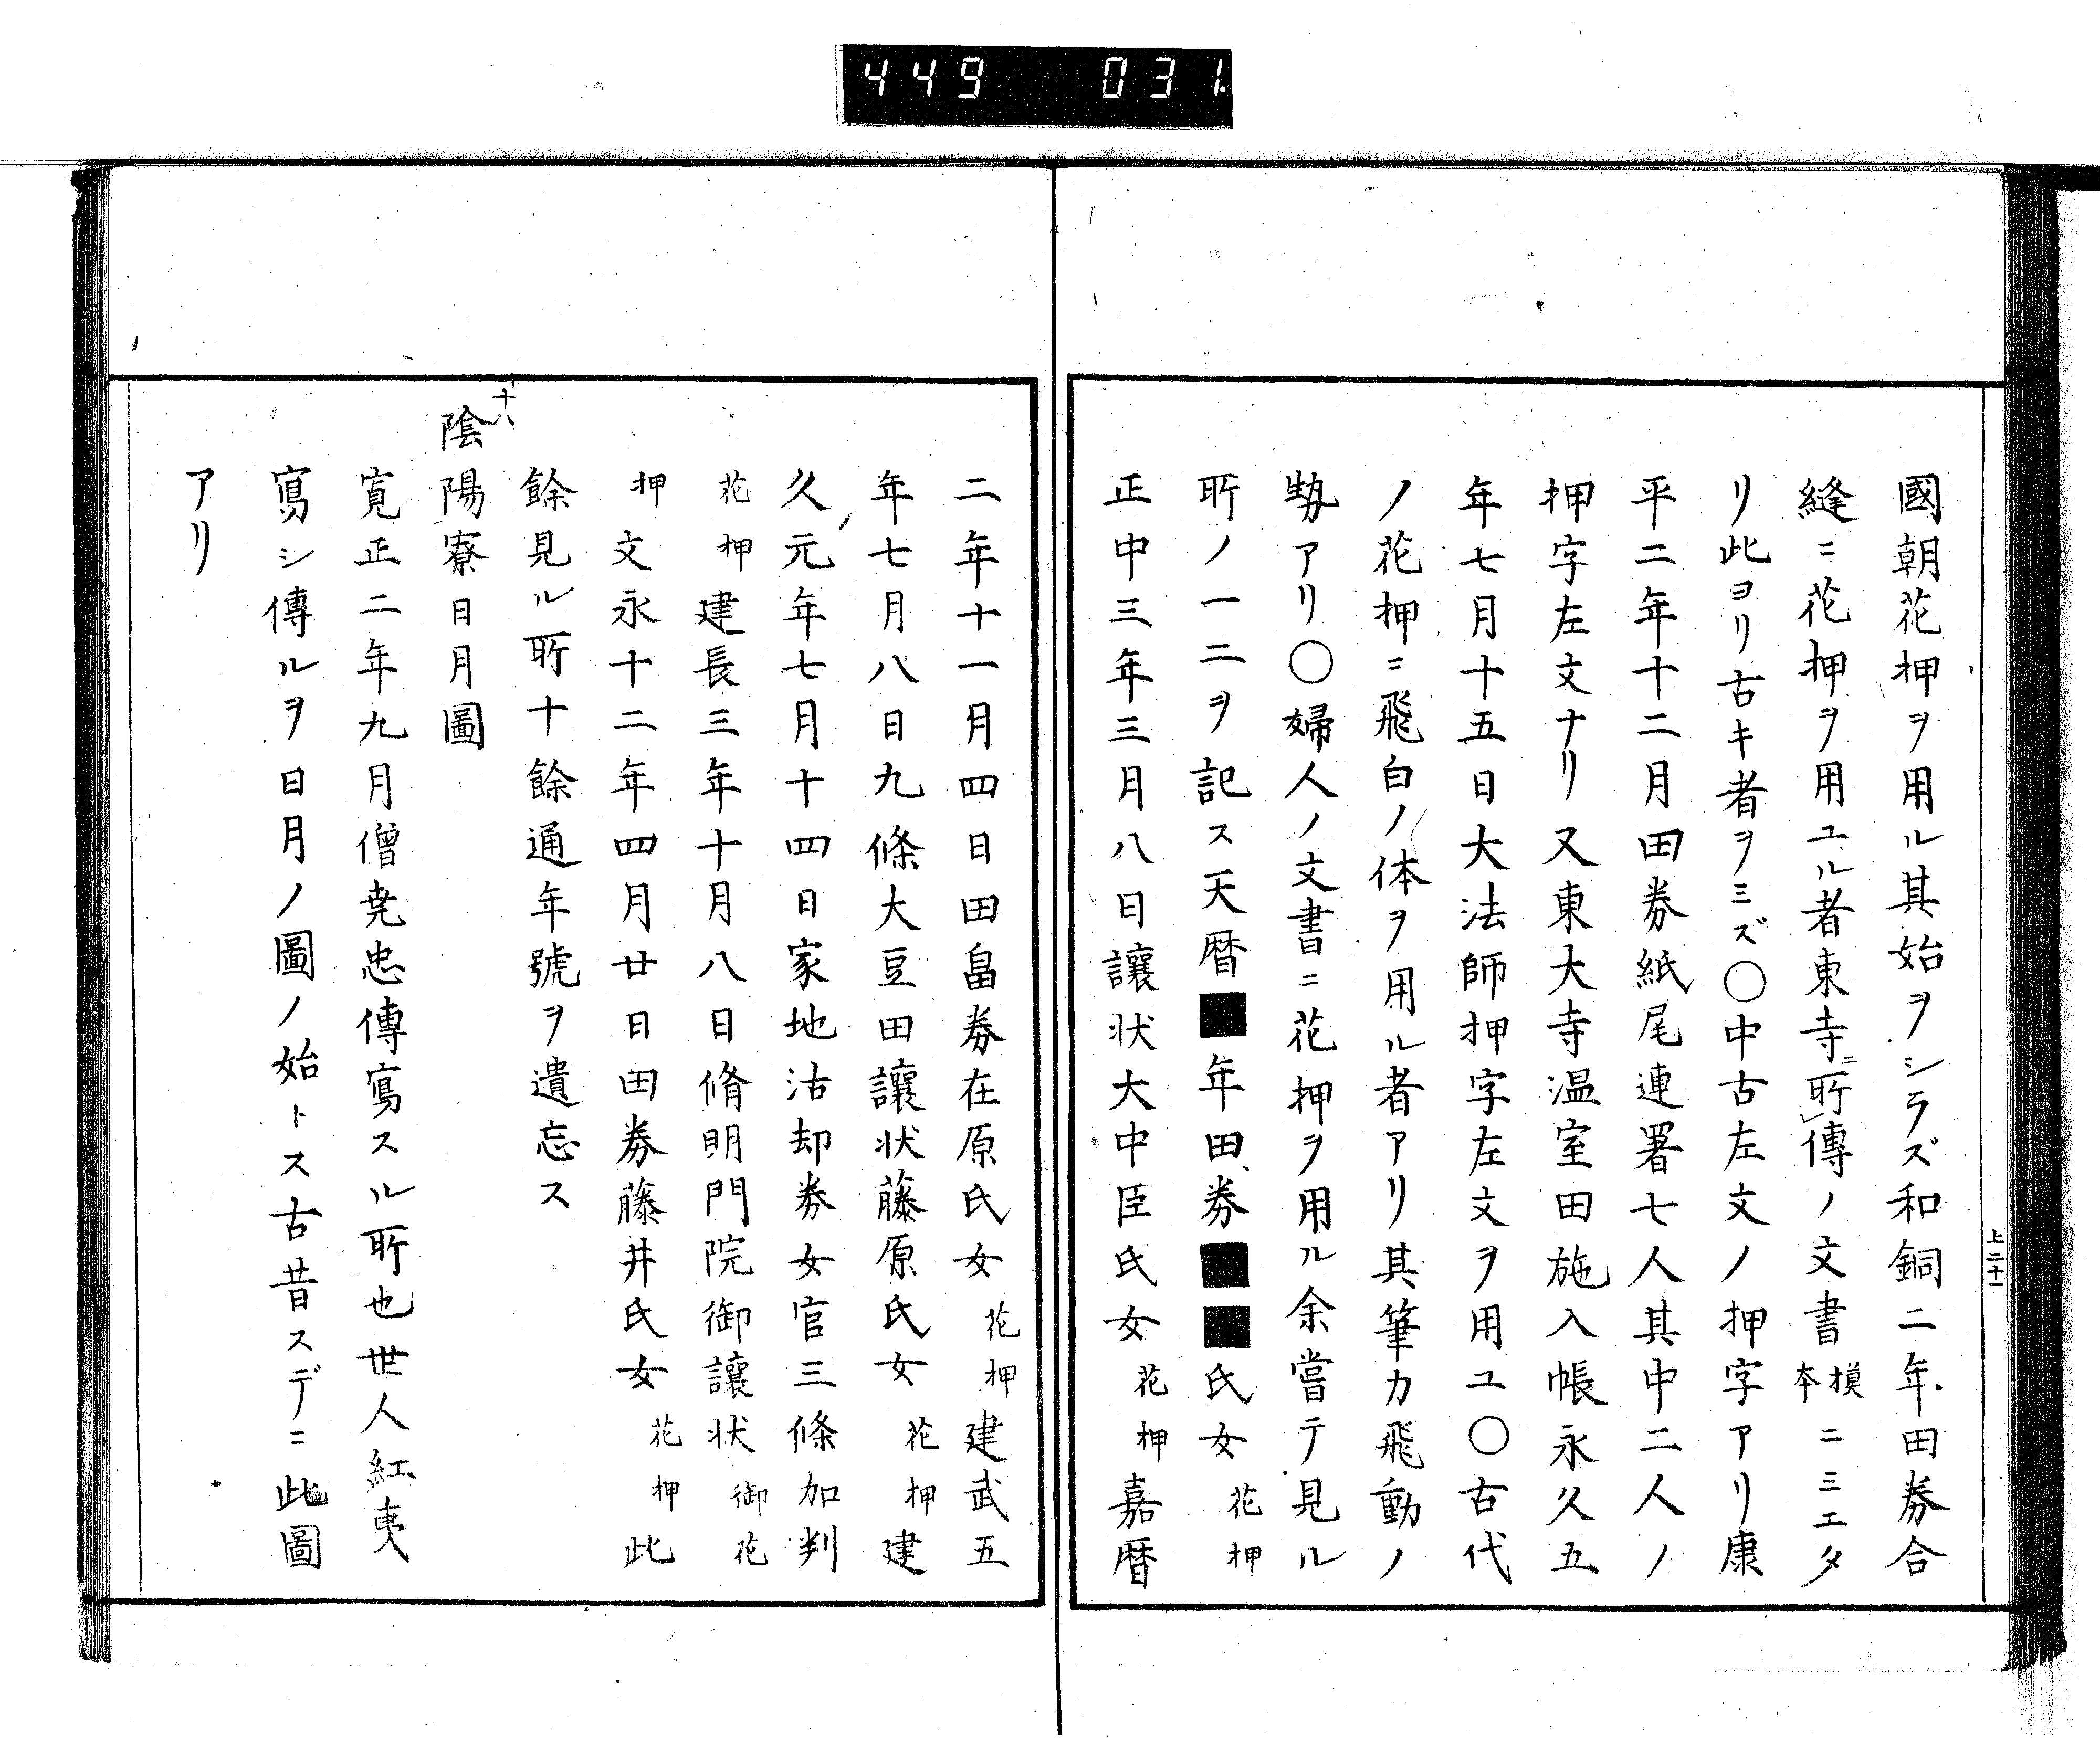 449 031
上二十一
國朝花押ヲ用ル其始ヲシラズ和銅二年田劵合
縫ニ花押ヲ用ユル者東寺ニ所傳ノ文書摸本ニミエタ
リ此ヨリ古キ者ヲミズ〇中古左文ノ押字アリ康
平二年十二月田劵紙尾連署七人其中二人ノ
押字左文ナリ又東大寺温室田施入帳永久五
年七月十五日大法師押字左文ヲ用ユ〇古代
ノ花押ニ飛白ノ体ヲ用ル者アリ其筆力飛動ノ
勢アリ〇婦人ノ文書ニ花押ヲ用ル余嘗テ見ル
所ノ一二ヲ記ス天暦■年田劵■■氏女花押
正中三年三月八日讓状大中臣氏女花押嘉暦
二年十一月四日田畠劵在原氏女花押建武五
年七月八日九條大豆田讓状藤原氏女花押建
久元年七月十四日家地沽却劵女官三條加判
花押建長三年十月八日脩明門院御讓状御花
押文永十二年四月廿日田劵藤井氏女花押此
餘見ル所十餘通年號ヲ遺忘ス
十八
陰陽寮日月圖
寛正二年九月僧尭忠傳寫スル所也世人紅夷
寫シ傳ルヲ日月ノ圖ノ始トス古昔スデニ此圖
アリ